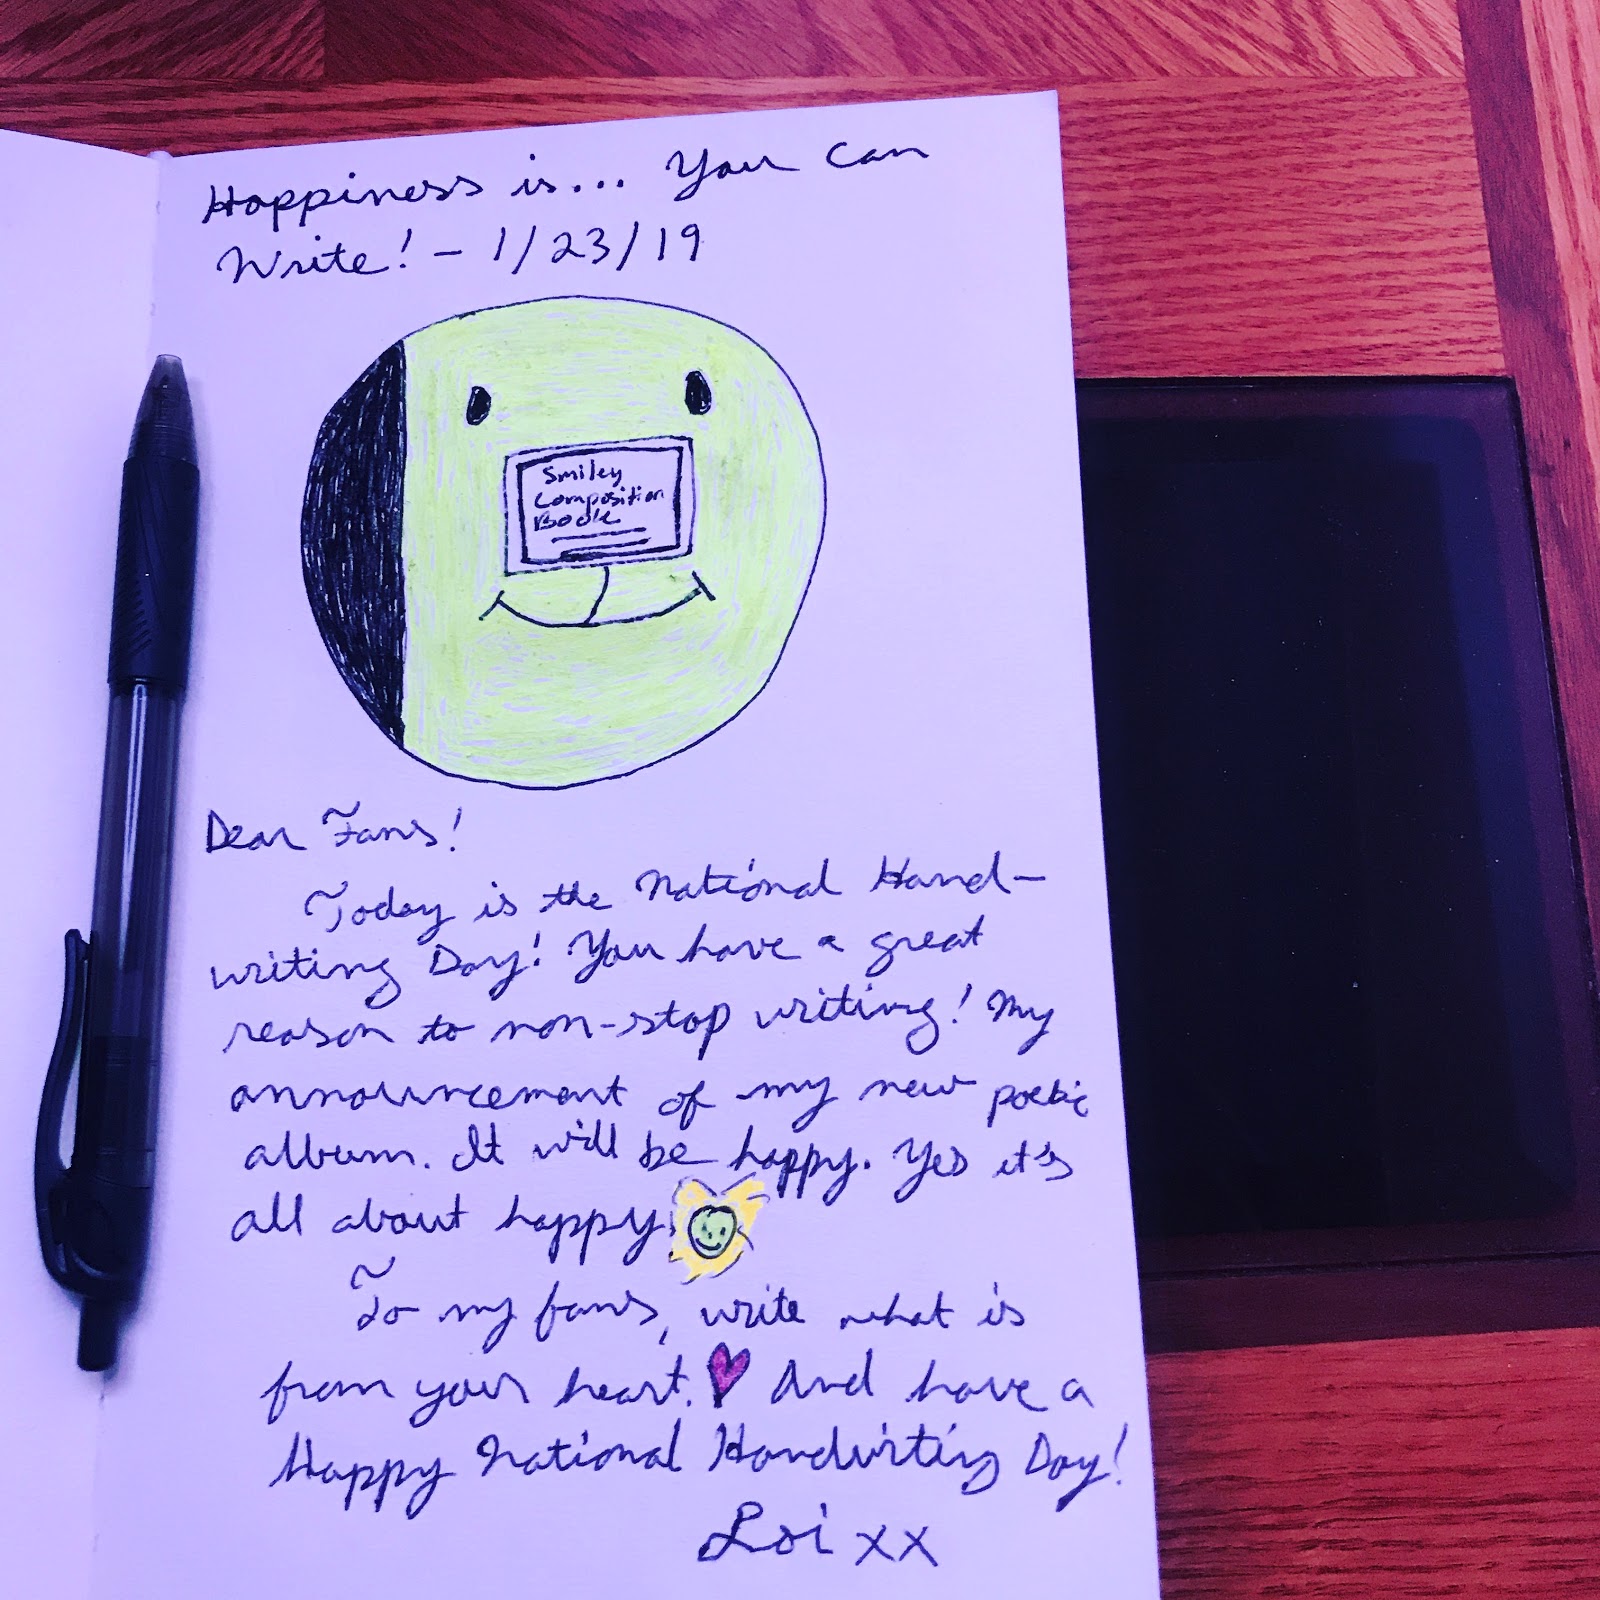 Happiness is... You Can
Write! - 1/23/19
Smiley
Composition
Book
Dear Fans!
Today is the National Hand-
writing Day! You have a great
reason to non-stop writing! My
announcement of my new poetic
album. It will be happy. Yes it's
all about happy.
To my fans, write what is
from your heart. And have a
Happy National Handwirting Day!
Loi xx